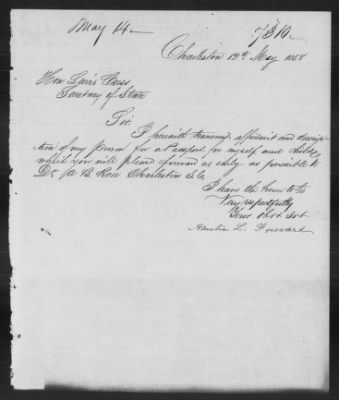 May 14
7310
Charleston 12th May 1858
Hon Lewis Cass
Secretary of State
Sir
I herewith transmit affidavit and descrip
tion of my person for a Passport for myself and child
which you will please forward as early as possible to
Dr A B Rose Charleston So Ca
I have the honor to be
Very respectfully
Your Obt Svt
Amelia L.